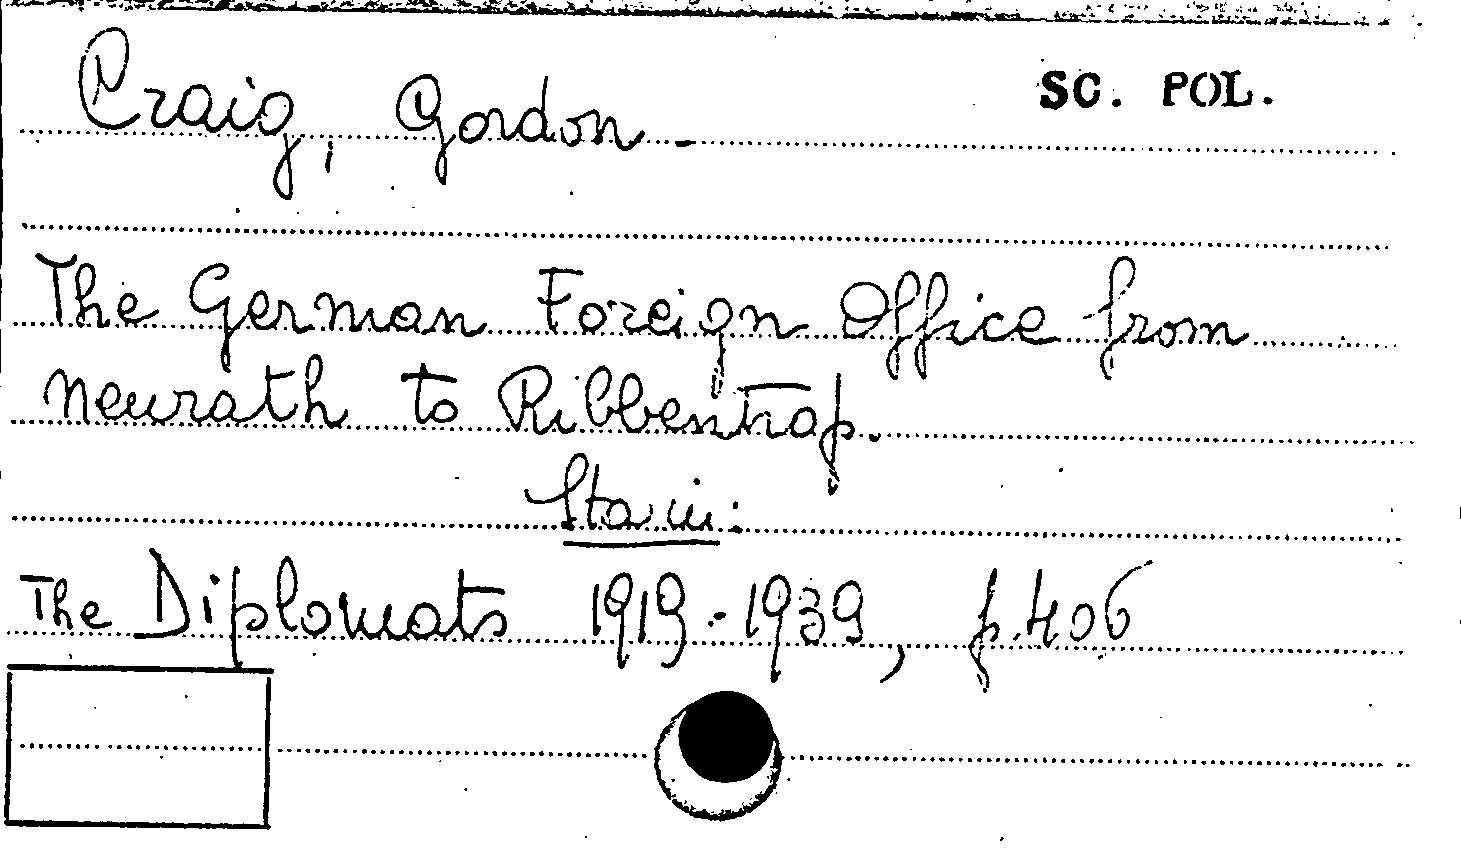 Craig, Gordon - SC. POL.
The German Foreign Office from
Neurath to Ribbentrop.
Sta in:
The Diplomats 1919-1939, p.406